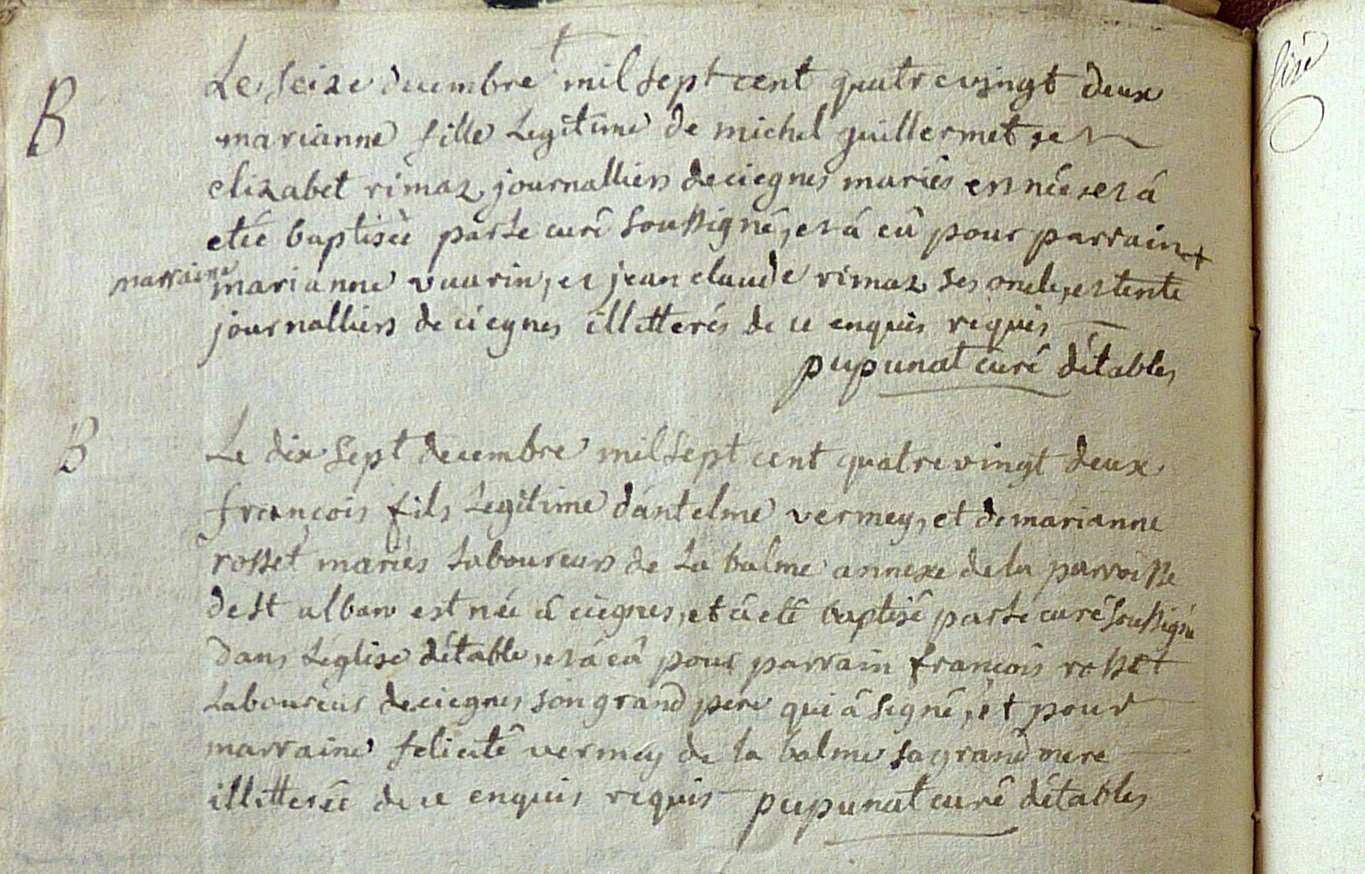 B
Le seize decembre mil sept cent quatre vingt deux
marianne fille Legitime de michel guillermet et
elizabet rimaz journalliers deciegnes mariés est née, et á
etée baptisée par le curé soussigné, et á eû pour parrain +
marraine marianne vuarin, et jean claude rimaz ses oncle, et tente
journalliers de ciegnes illitterés de ce enquis requis
pupunat curé détables
B
Le dix sept decembre mil sept cent quatre vingt deux
françois fils Legitime dántelme vermey, et de marianne
rosset mariés Laboureurs de La balme annexe de la parroisse
de st alban est née á ciegnes, et á eté baptisé par le curé soussigné
dans Léglise détable, et á eû pour parrain françois rosset
Laboureur deciegnes son grand pere qui á signé, et pour
marraine felicité vermey de la balme sa grand mere
illitterée de ce enquis requis pupunat curé détables